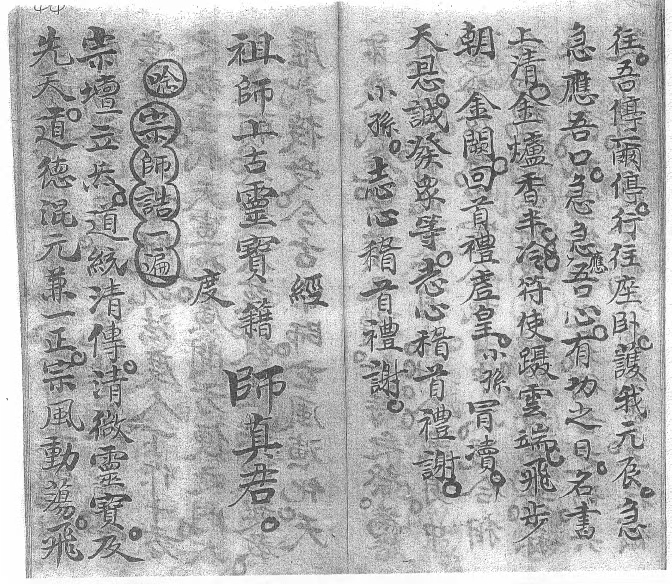 往。吾傳爾傳。行住座卧。護我元辰。急
急應吾口。急急應吾心。有功之日。名書
上清。金爐香半冷。符使躡雲端。飛步
朝金闕。回首禮虛皇。小孫冒瀆。
天恩。誠癸眾等。志心稽首禮謝。
小孫。志心稽首禮謝。
經
祖師上古靈寶籍師真君。
度
唸宗師誥一遍
崇壇立共。道統清傳。清微靈寶及
先天。道德混元兼一正。宗風動蕩飛